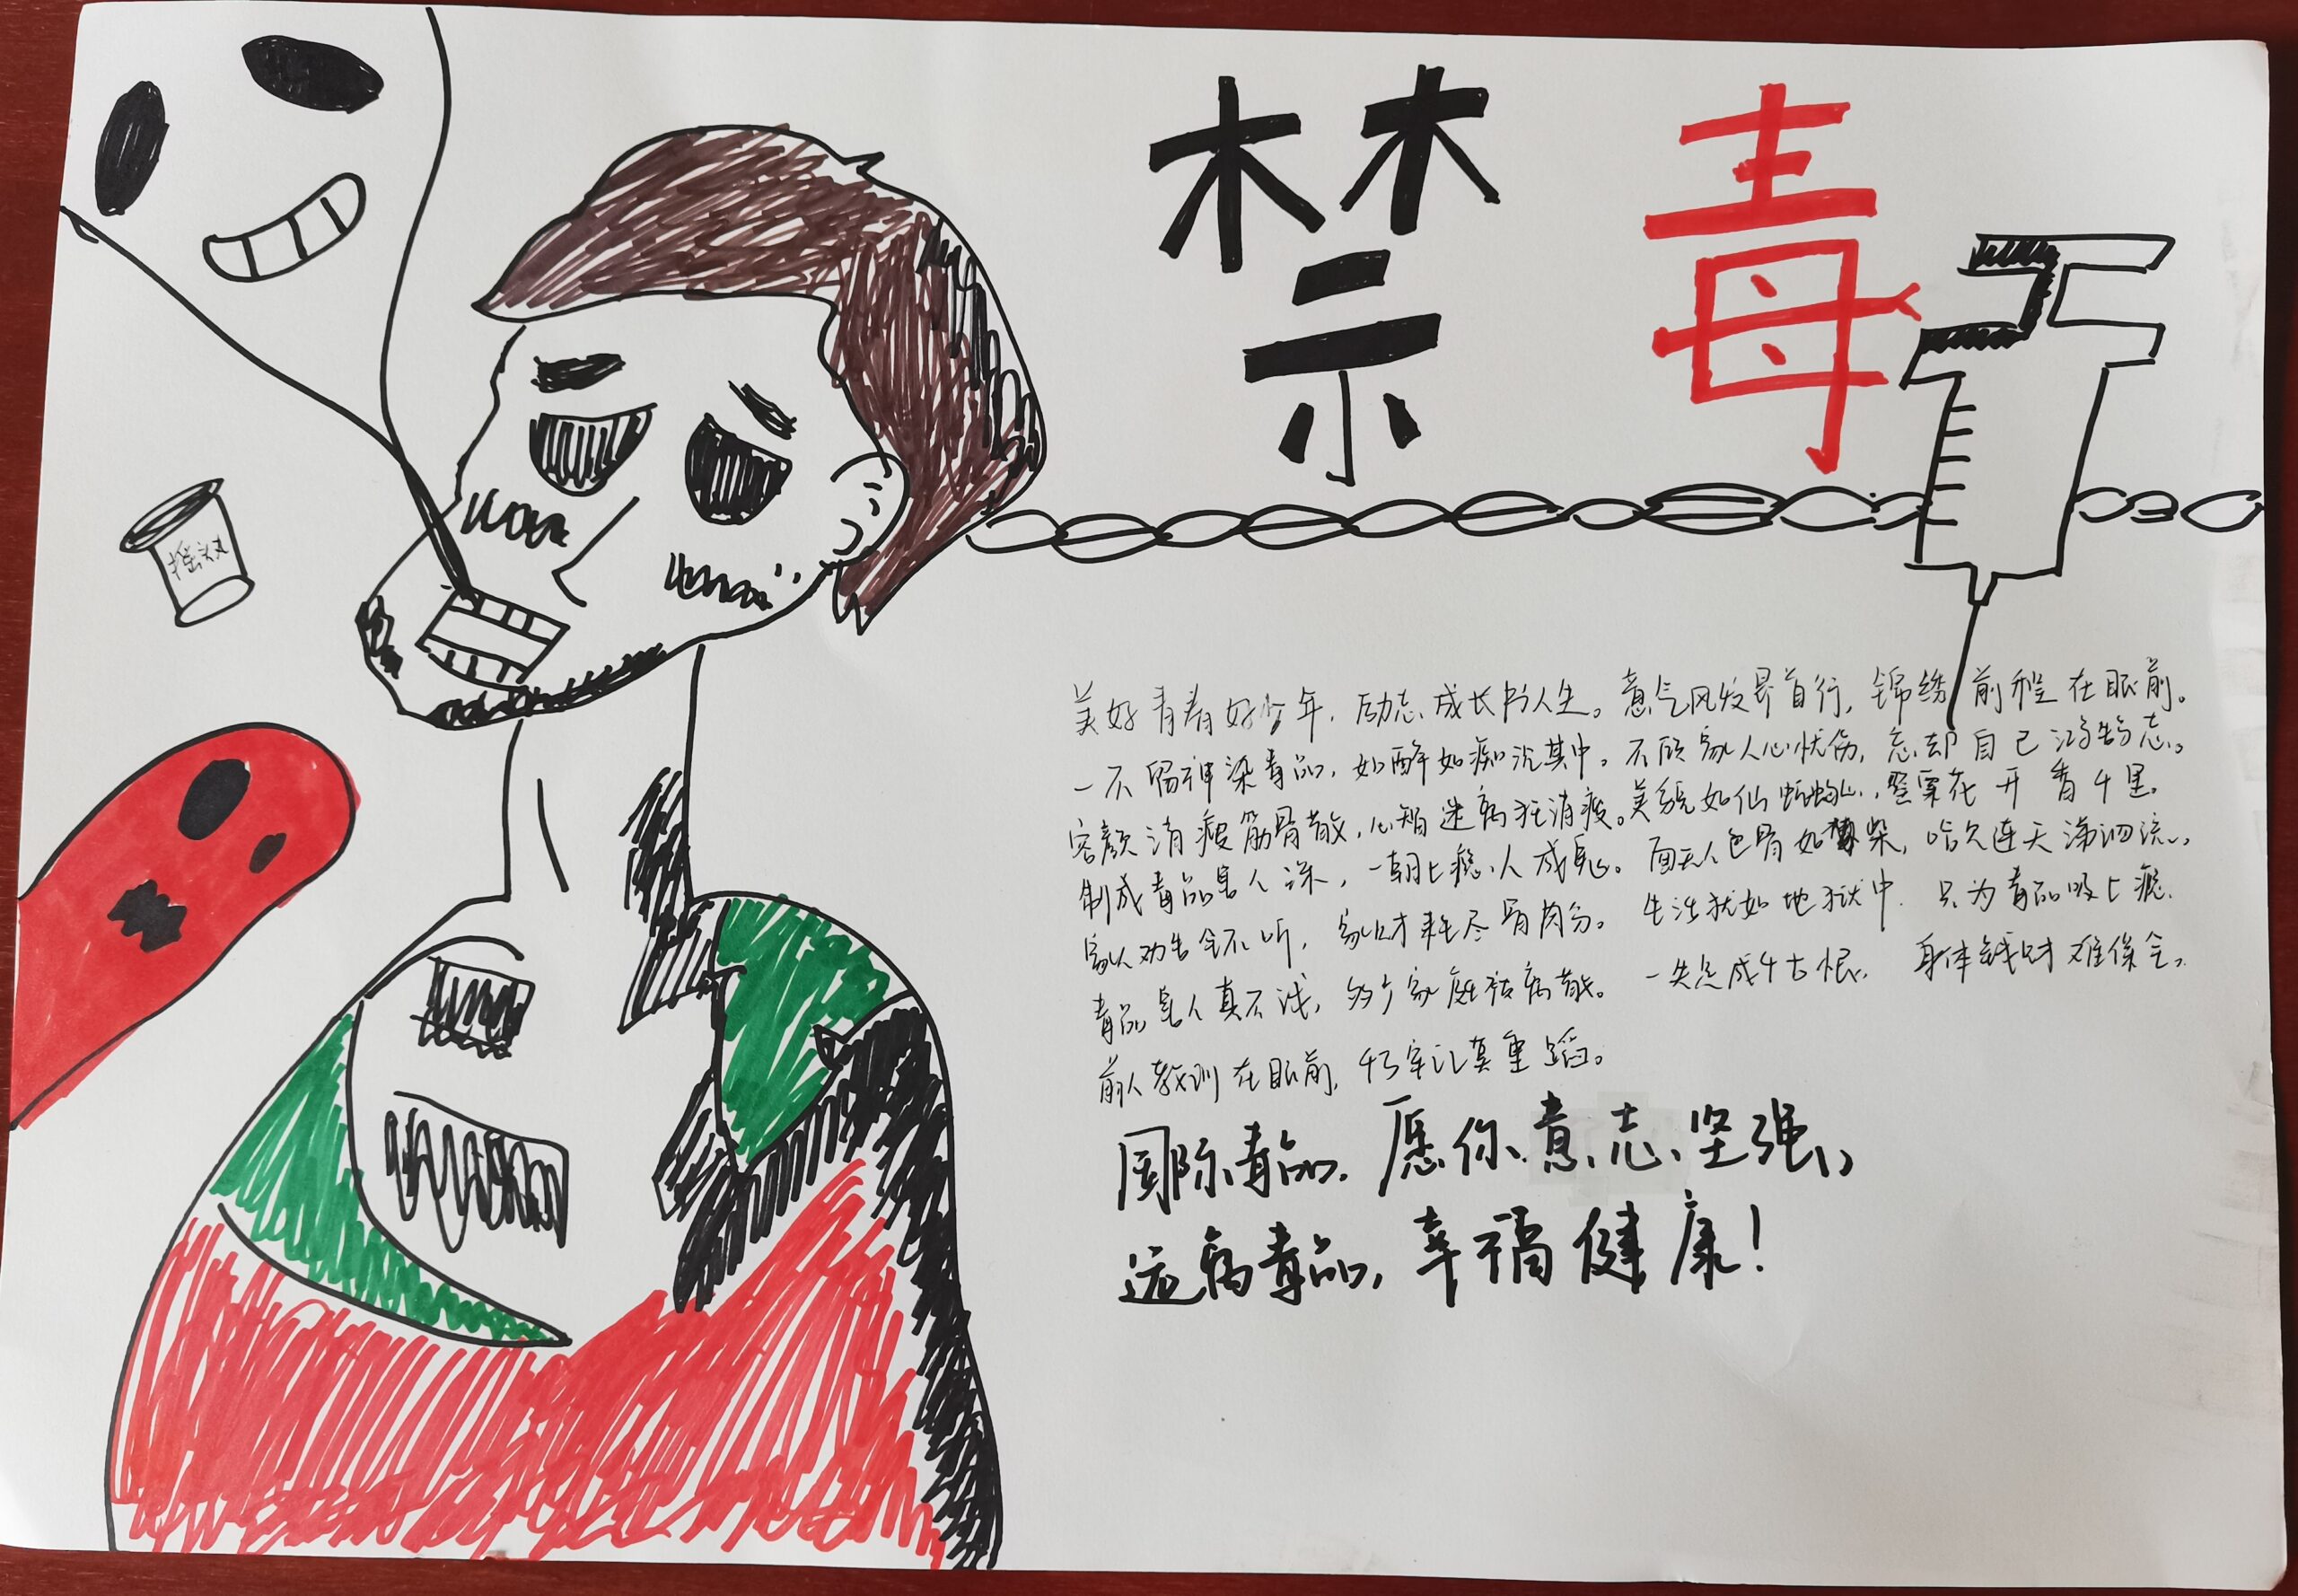 禁毒
摇
美好青春好少年,励志成长书人生。意气风发昂首行,锦绣前程在眼前。
一不留神染毒品,如醉如痴沉其中。不顾家人心忧伤,忘却自己鸿鹄志。
容颜消瘦筋骨散,心智迷离狂消瘦。美貌如仙,罂粟花开香千里。
制成毒品害人深,一朝上瘾人成鬼。面无人色骨如柴,哈欠连天涕泗流。
家人劝告全不听,家财耗尽骨肉分。生活犹如地狱中,只为毒品吸上瘾。
毒品害人真不浅,多少家庭被离散。一失足成千古恨,身体钱财难保全。
前人教训在眼前,切牢记莫重蹈。
国际毒品,愿你意志坚强,
远离毒品,幸福健康!